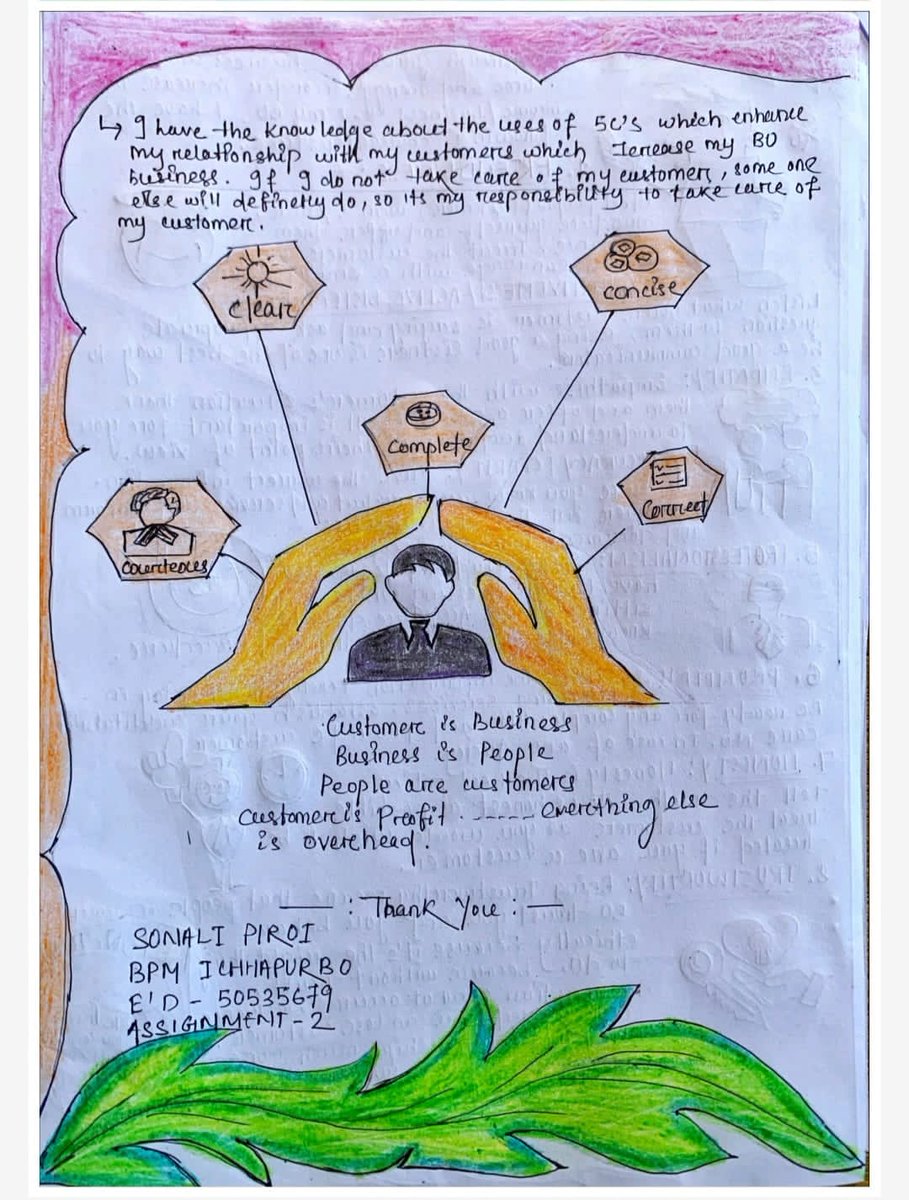 ↳ I have the knowledge about the uses of 5C's which enhance
my relationship with my customers which Increase my BO
business. If I do not take care of my customer, some one
else will definetly do, so its my responsbility to take care of
my customer.
clear
concise
complete
correct
courteous
Customer is Business
Business is People
People are customers
Customer is Profit. ----- everthing else
is overhead.
— : Thank You : —
SONALI PIROI
BPM ICHHAPUR BO
E'D - 50535679
ASSIGNMENT-2